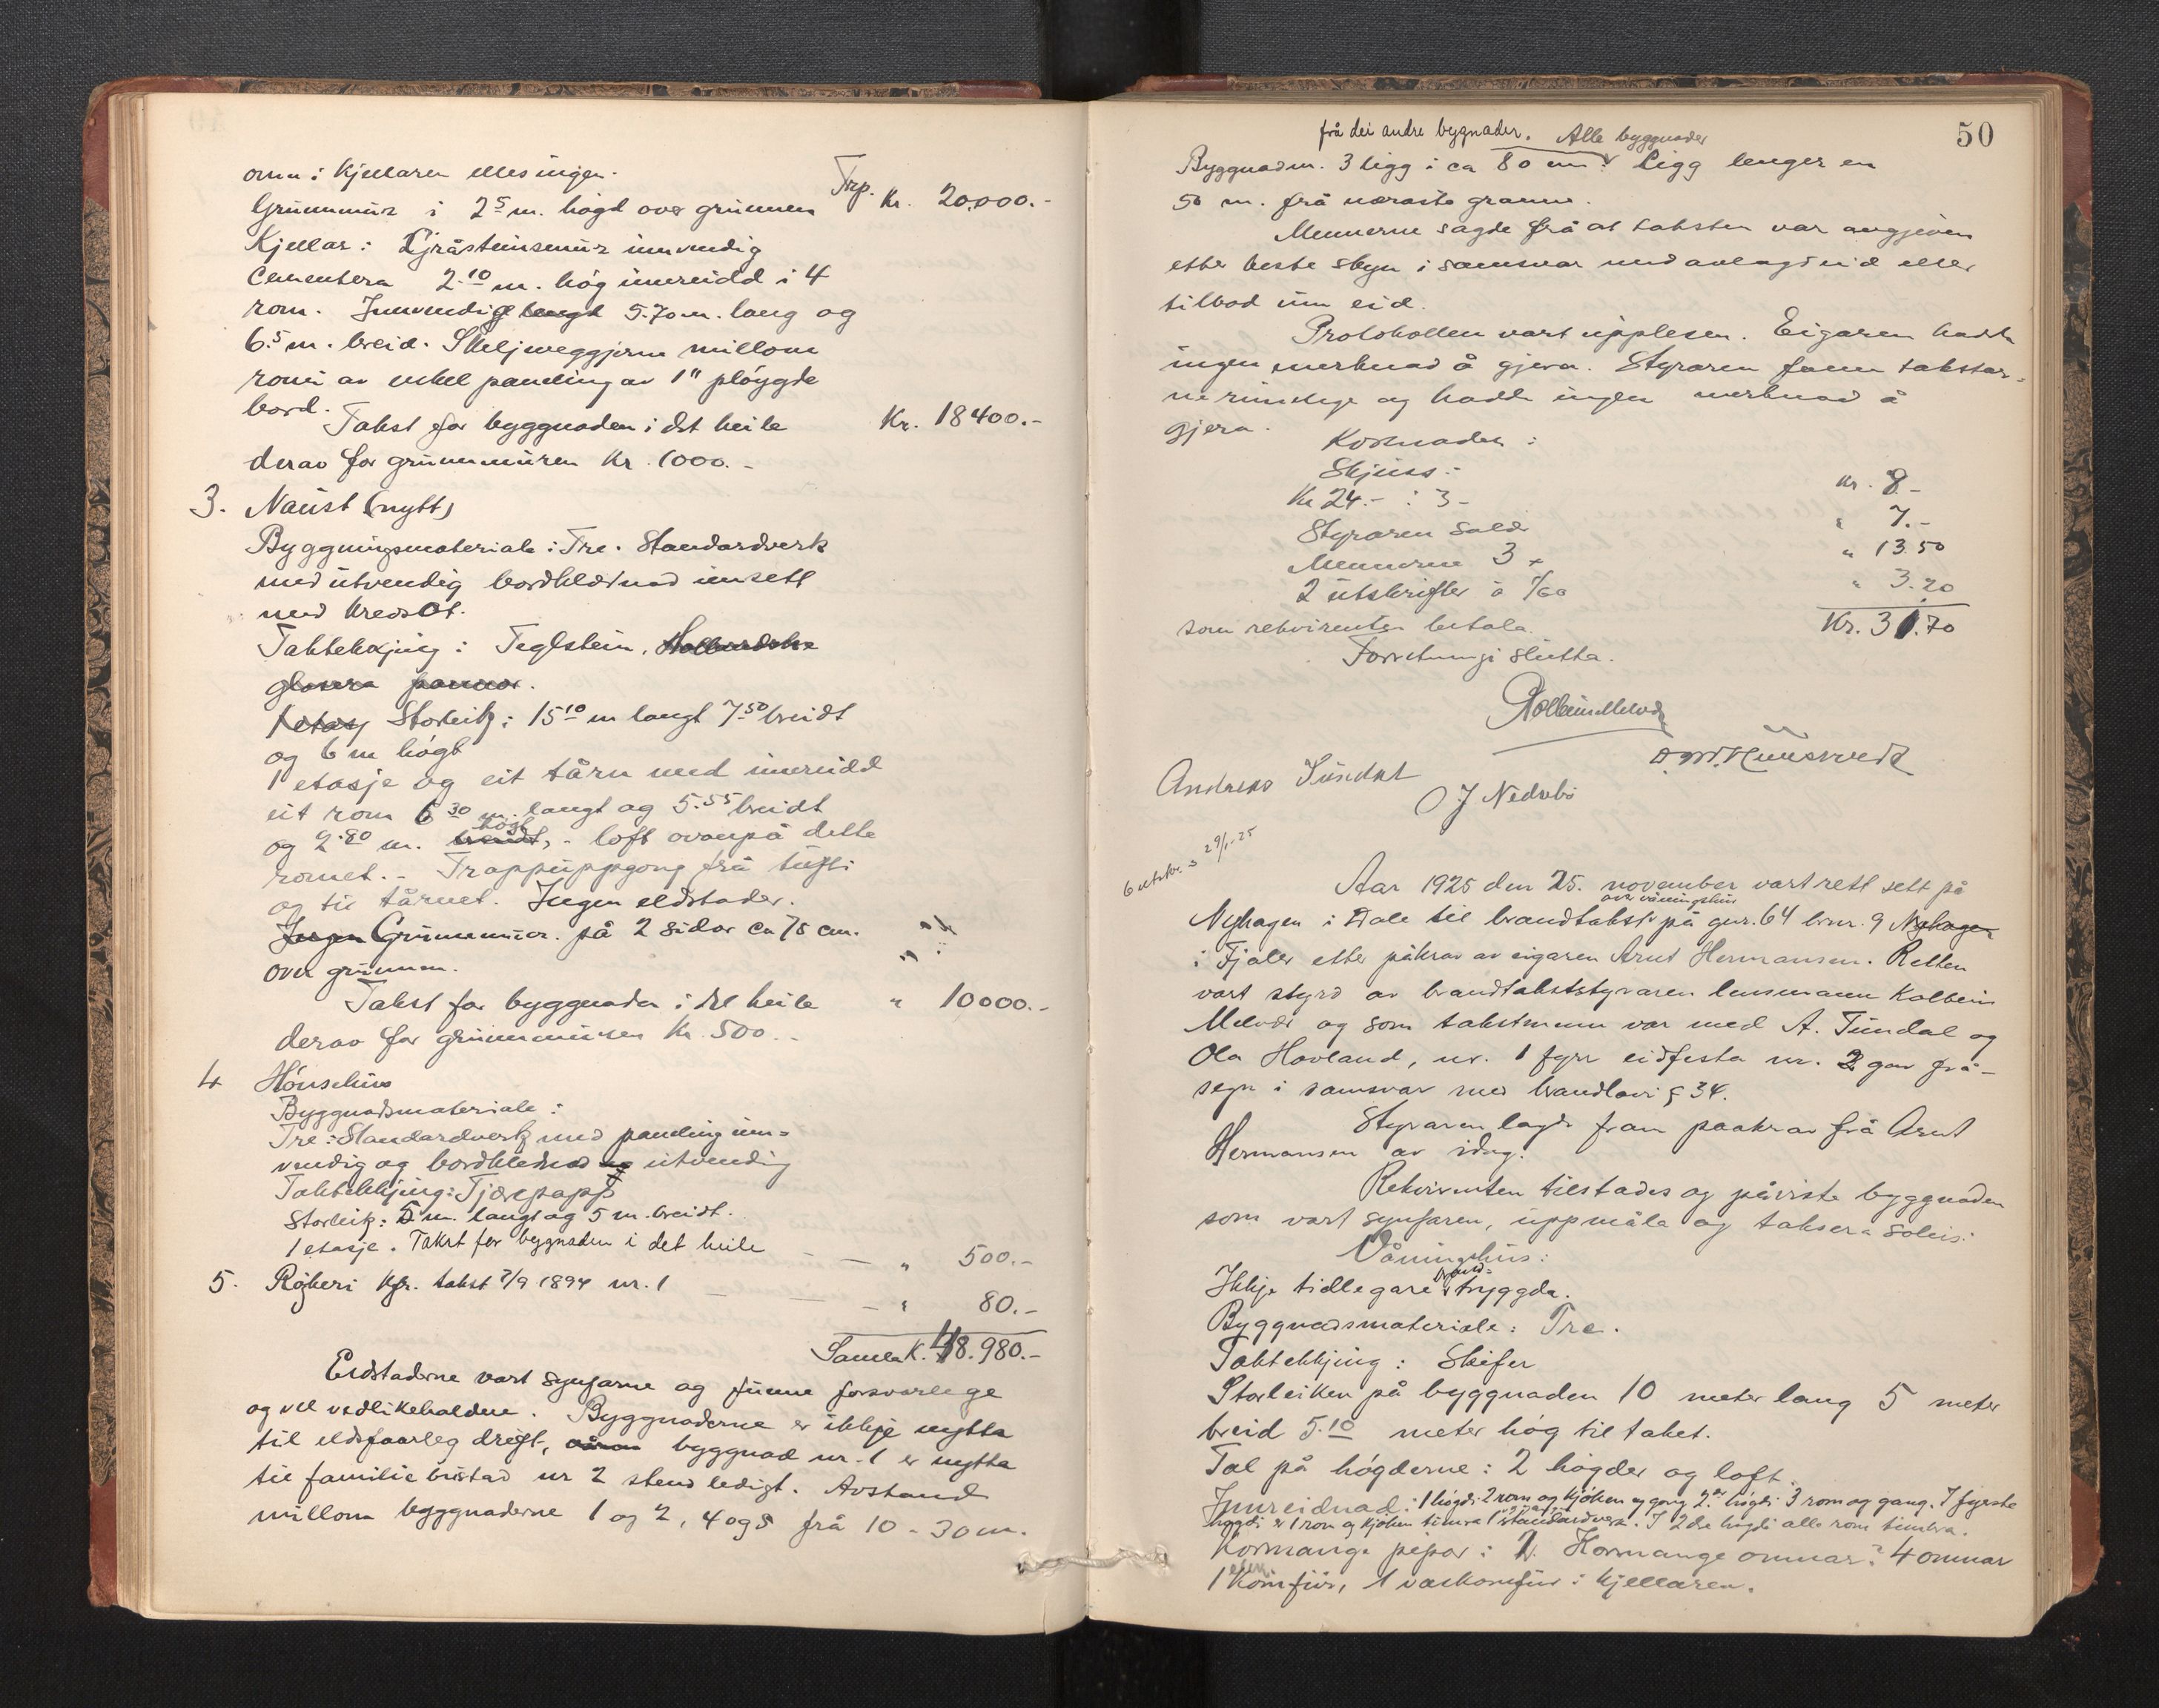 omn i kjellaren elles ingen.
Trp. Kr. 20,000.-
Grunnmur i 2.5 m. høgd over grunnen
Kjellar: Gråsteinsmur innvendig
cementera 2.10 m. høg innreidd i 4
rom. Innvendig lengd 5.70 m. lang og
6.5 m. breid. Skiljeveggjerne millom
romi av enkel paneling av 1" pløygde
bord.
Takst for byggnaden i det heile Kr. 18400.-
derav for grunnmuren Kr. 1000.-
3. Naust (nytt)
Byggningsmateriale: Tre. Standardverk
med utvendig bordklædnad innsett
med kreosot.
Taktekkjing: Teglstein. Hollandske
glasera pannor.
Storleik: 15.10 m langt 7.50 breidt
og 6 m høgt
1 etasje og eit tårn med innreidd
eit rom 6.30 m. langt og 5.55 breidt
og 2.80 m. breidt, høgt - loft ovanpå dette
romet. - Trappuppgong frå
og til tårnet. Ingen eldstader.
Ingen Grunnmur. på 2 sidor ca 75 cm.
over grunnen.
Takst for byggnaden i det heile " 10000.-
derav for grunnmuren Kr. 500.-
4 Hønsehus
Byggnadsmateriale:
Tre: Standardverk med paneling inn-
vendig og bordklednad og utvendig
Taktekkjing: Tjærepapp
Storleik: 5 m. langt og 5 m. breidt.
1 etasje. Takst for bygnaden i det heile - - " 500.-
5. Røykeri Kfr. takst 7/9 1894 nr. 1 - - - " 80.-
Samla K. 48.980.-
Eldstaderne vart synfarne og funne forsvarlege
og vel vedlikehaldne. Byggnaderne er ikkje nytta
til eldsfaarleg drift, byggnad nr. 1 er nytta
til familie bustad nr 2 stend ledigt. Avstand
millom byggnaderne 1 og 2, 4 og 5 frå 10 - 30 m.
50
frå dei andre bygnader. Alle byggnader
Byggnad nr. 3 ligg i ca 80 m. Ligg lenger en
50 m. frå næraste granne.
Mennerne sagde frå at taksten var avgjeven
etter beste skyn i samsvar med avlagd eid eller
tilbod um eid.
Protokollen vart upplesen. Eigaren hadde
ingen merknad å gjera. Styraren fann takstar-
ne rimelege og hadde ingen merknad å
gjera.
Kostnader:
Skjuss:
Kr 24.- : 3 - kr. 8.-
Styraren sald " 7.-
Mennerne 3 x " 13.50
2 utskrifter à 1/60 " 3.20
som rekvirenten betala. Kr. 31.70
Forretningi slutta.
Kolbein Melvær
Andreas Tundal
O J Nedrebø
6 utskr. 29/1-25
Aar 1925 den 25. november vart rett sett på
over våningshus
Nyhagen i Dale til brandtakst på gnr. 64 bnr. 9 Nyhagen
i Fjaler etter påkrav av eigaren Arnt Hermansen. Retten
vart styrd av brandtakststyraren lensmann Kolbein
Melvær og som takstmenn var med A. Tundal og
Ola Hovland, nr. 1 fyrr eidfesta nr. 2 gav frå-
segn i samsvar med brandlovi § 34.
Styraren lagde fram paakrav frå Arnt
Hermansen av idag.
Rekvirenten tilstades og påviste byggnaden
som vart synfaren, uppmåla og taksera soleis:
Våningshus:
Ikkje tidlegare brand-tryggda.
Byggnadsmateriale: Tre.
Taktekkjing: Skifer
Storleiken på byggnaden 10 meter lang 5 meter
breid 5.10 meter høg til taket.
Tal på høgderne: 2 høgder og loft.
Innreidnad: 1 høgdi 2 rom og kjøken og gang 2. høgdi 3 rom og gang. I fyrste
høgdi er 1 rom og kjøken timra 1 standardverk. I 2dre høgdi alle rom timbra.
Kormange pipor: 1. Kormange omnar: 4 omnar
1 komfur, 1 vaskomfur i kjellaren.